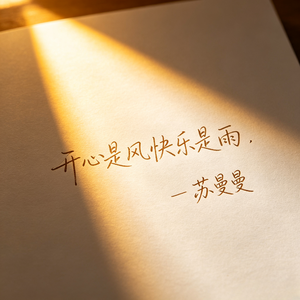 开心是风快乐是雨.
— 苏曼曼